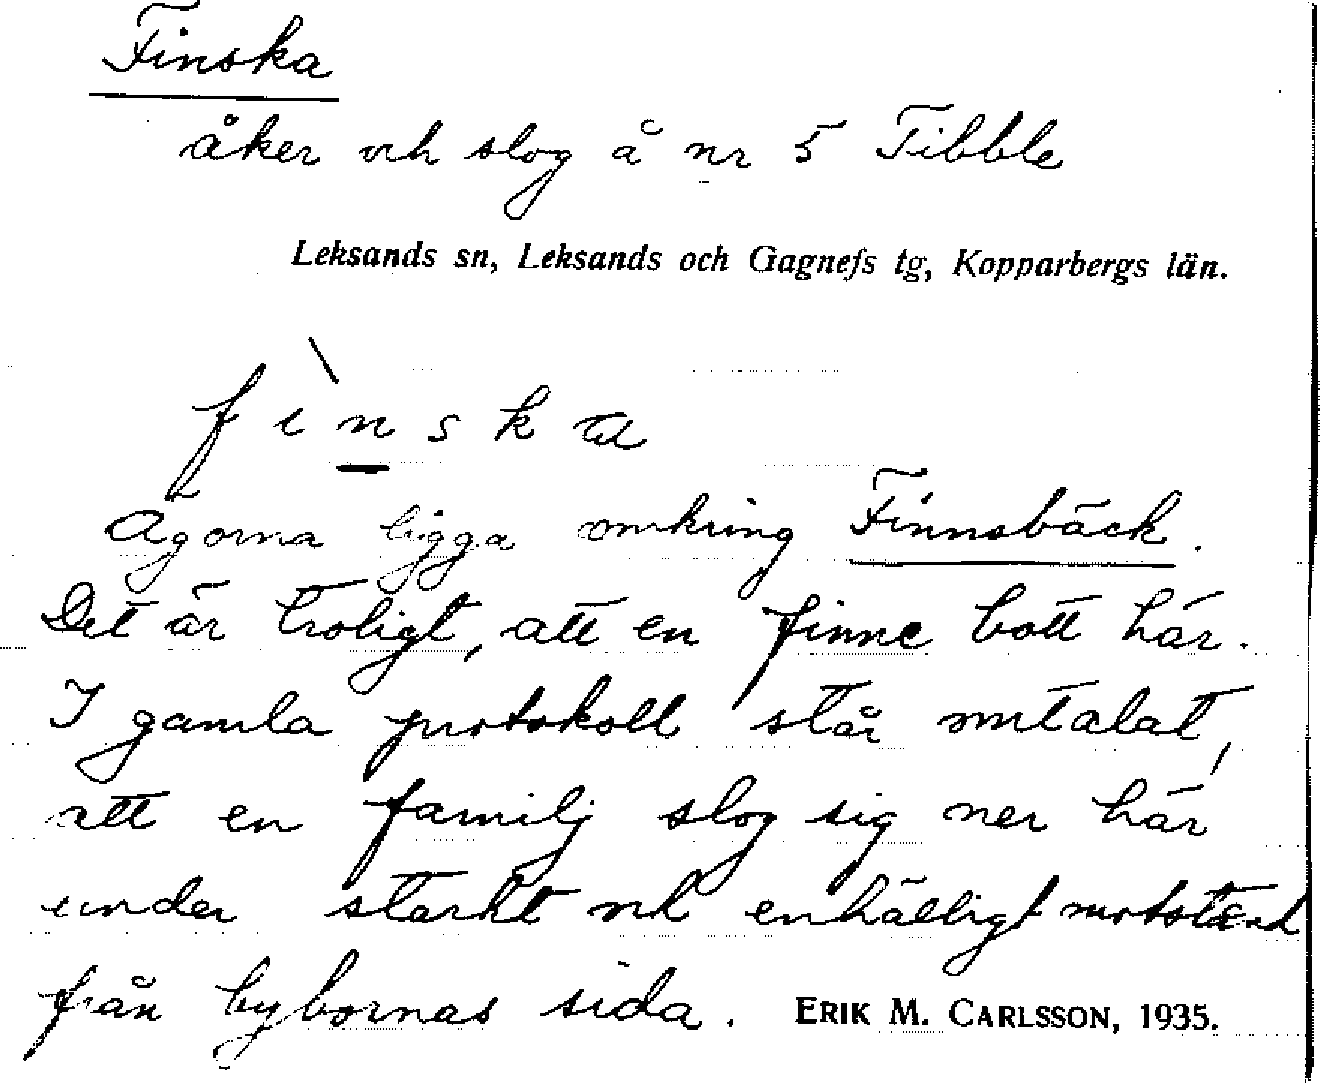 Finska
åker och slog å nr 5 Tibble
Leksands sn, Leksands och Gagnefs tg, Kopparbergs län.
fìnska
Ägorna ligga omkring Finnsbäck.
Det är troligt, att en finne bott här.
I gamla protokoll står omtalat,
att en familj slog sig ner här
under starkt och enhälligt motstånd
från bybornas sida. ERIK M. CARLSSON, 1935.